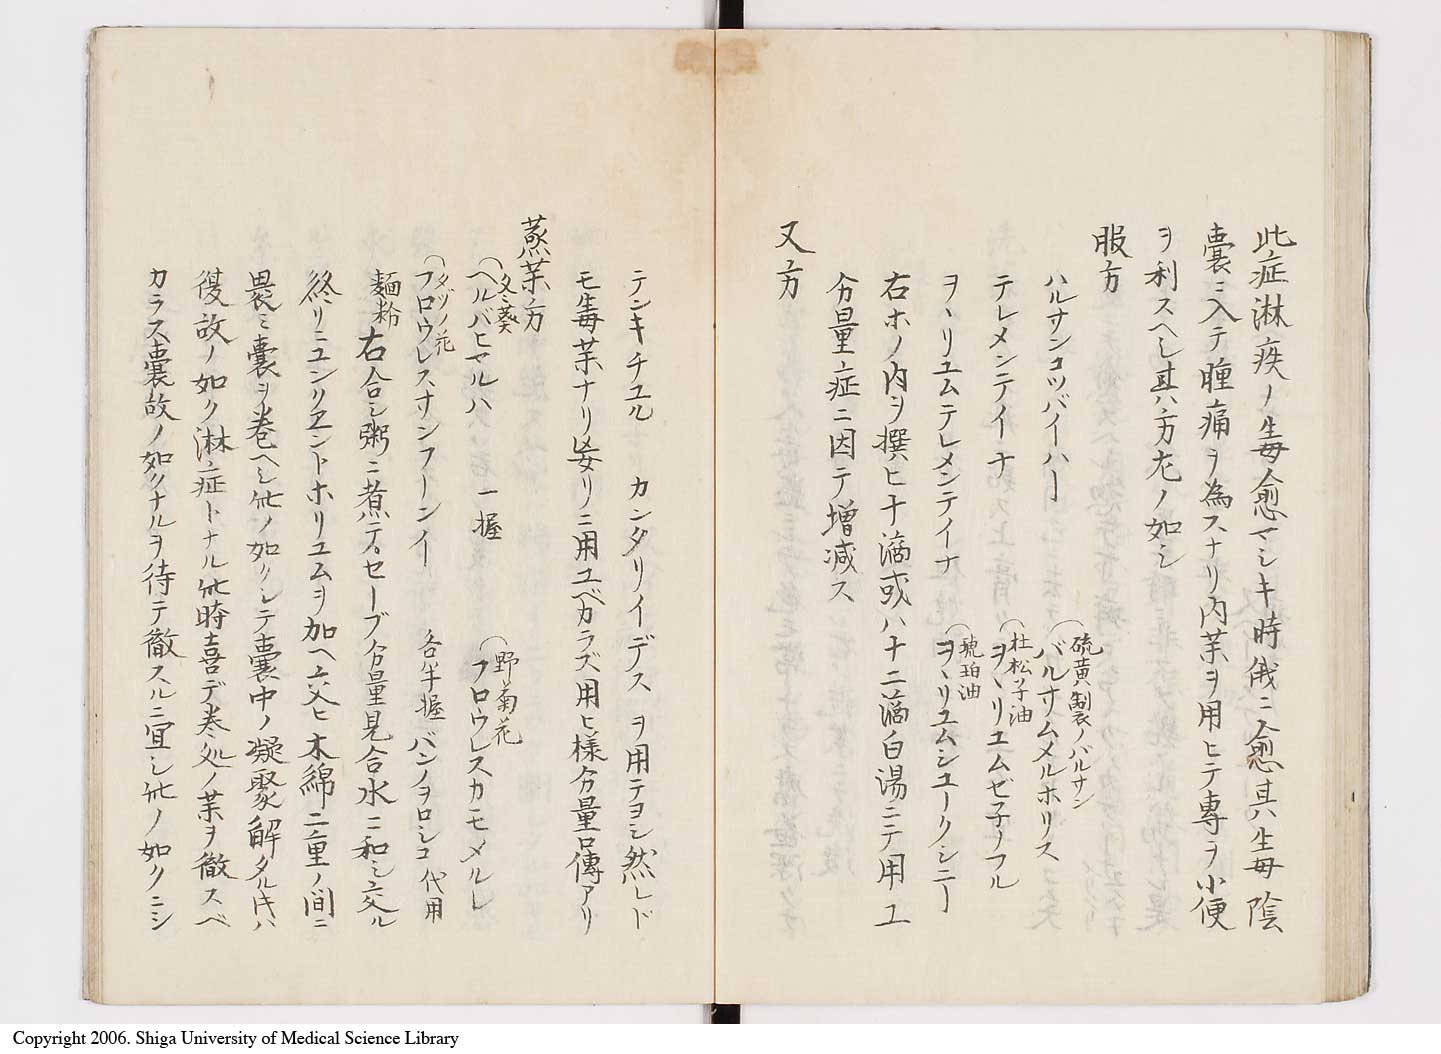 此症淋疾ノ生毒愈マシキ時俄ニ愈其生毒陰
嚢ニ入テ腫痛ヲ為スナリ内薬ヲ用ヒテ專ラ小便
ヲ利スヘシ其ハ方左ノ如シ
服方
ハルサンコッバイハー
硫黄製ノバルサン
バルサムメルホリス
テレメンテイーナ
杜松子油
ヲヽリユムゼ子フル
ヲヽリユムテレメンテイナ
琥珀油
ヲヽリユムシユークシニー
右ホノ内ヲ撰ヒ十滴或ハ十二滴白湯ニテ用ユ
分量ハ症ニ因テ増减ス
又方
テンキチユル カンタリイデス ヲ用テヨシ然レド
モ毒薬ナリ妄リニ用ユベカラズ用ヒ様分量口傳アリ
蒸薬方
冬葵
ヘルバヒマルハ 一握
野菊花
フロウレスカモメルレ
タヅノ花
フロウレスサンフーシイ 各半握 バンノヲロシコ代用
麺粉 右合シ粥ニ煮テ。セーブ分量見合水ニ和シ交ル
終リニユンリエントホリユムヲ加ヘ交ヒ木綿二重ノ間ニ
畏ミ嚢ヲ巻ヘシ此ノ如クシテ嚢中ノ凝聚解タル片ハ
復故ノ如ク淋症トナル此時喜デ巻処ノ薬ヲ徹スベ
カラス嚢故ノ如クナルヲ待テ徹スルニ宜シ此ノ如クニシ
Copyright 2006. Shiga University of Medical Science Library